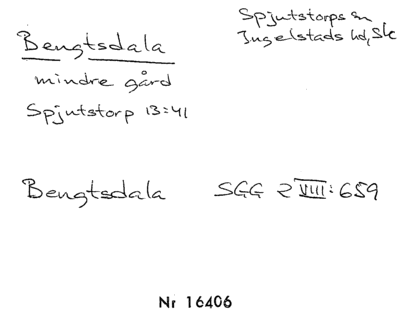 Bengtsdala
Spjutstorps sn
Ingelstads hd, Sk
mindre gård
Spjutstorp 13:41
Bengtsdala SGG 2 VIII: 659
Nr 16406